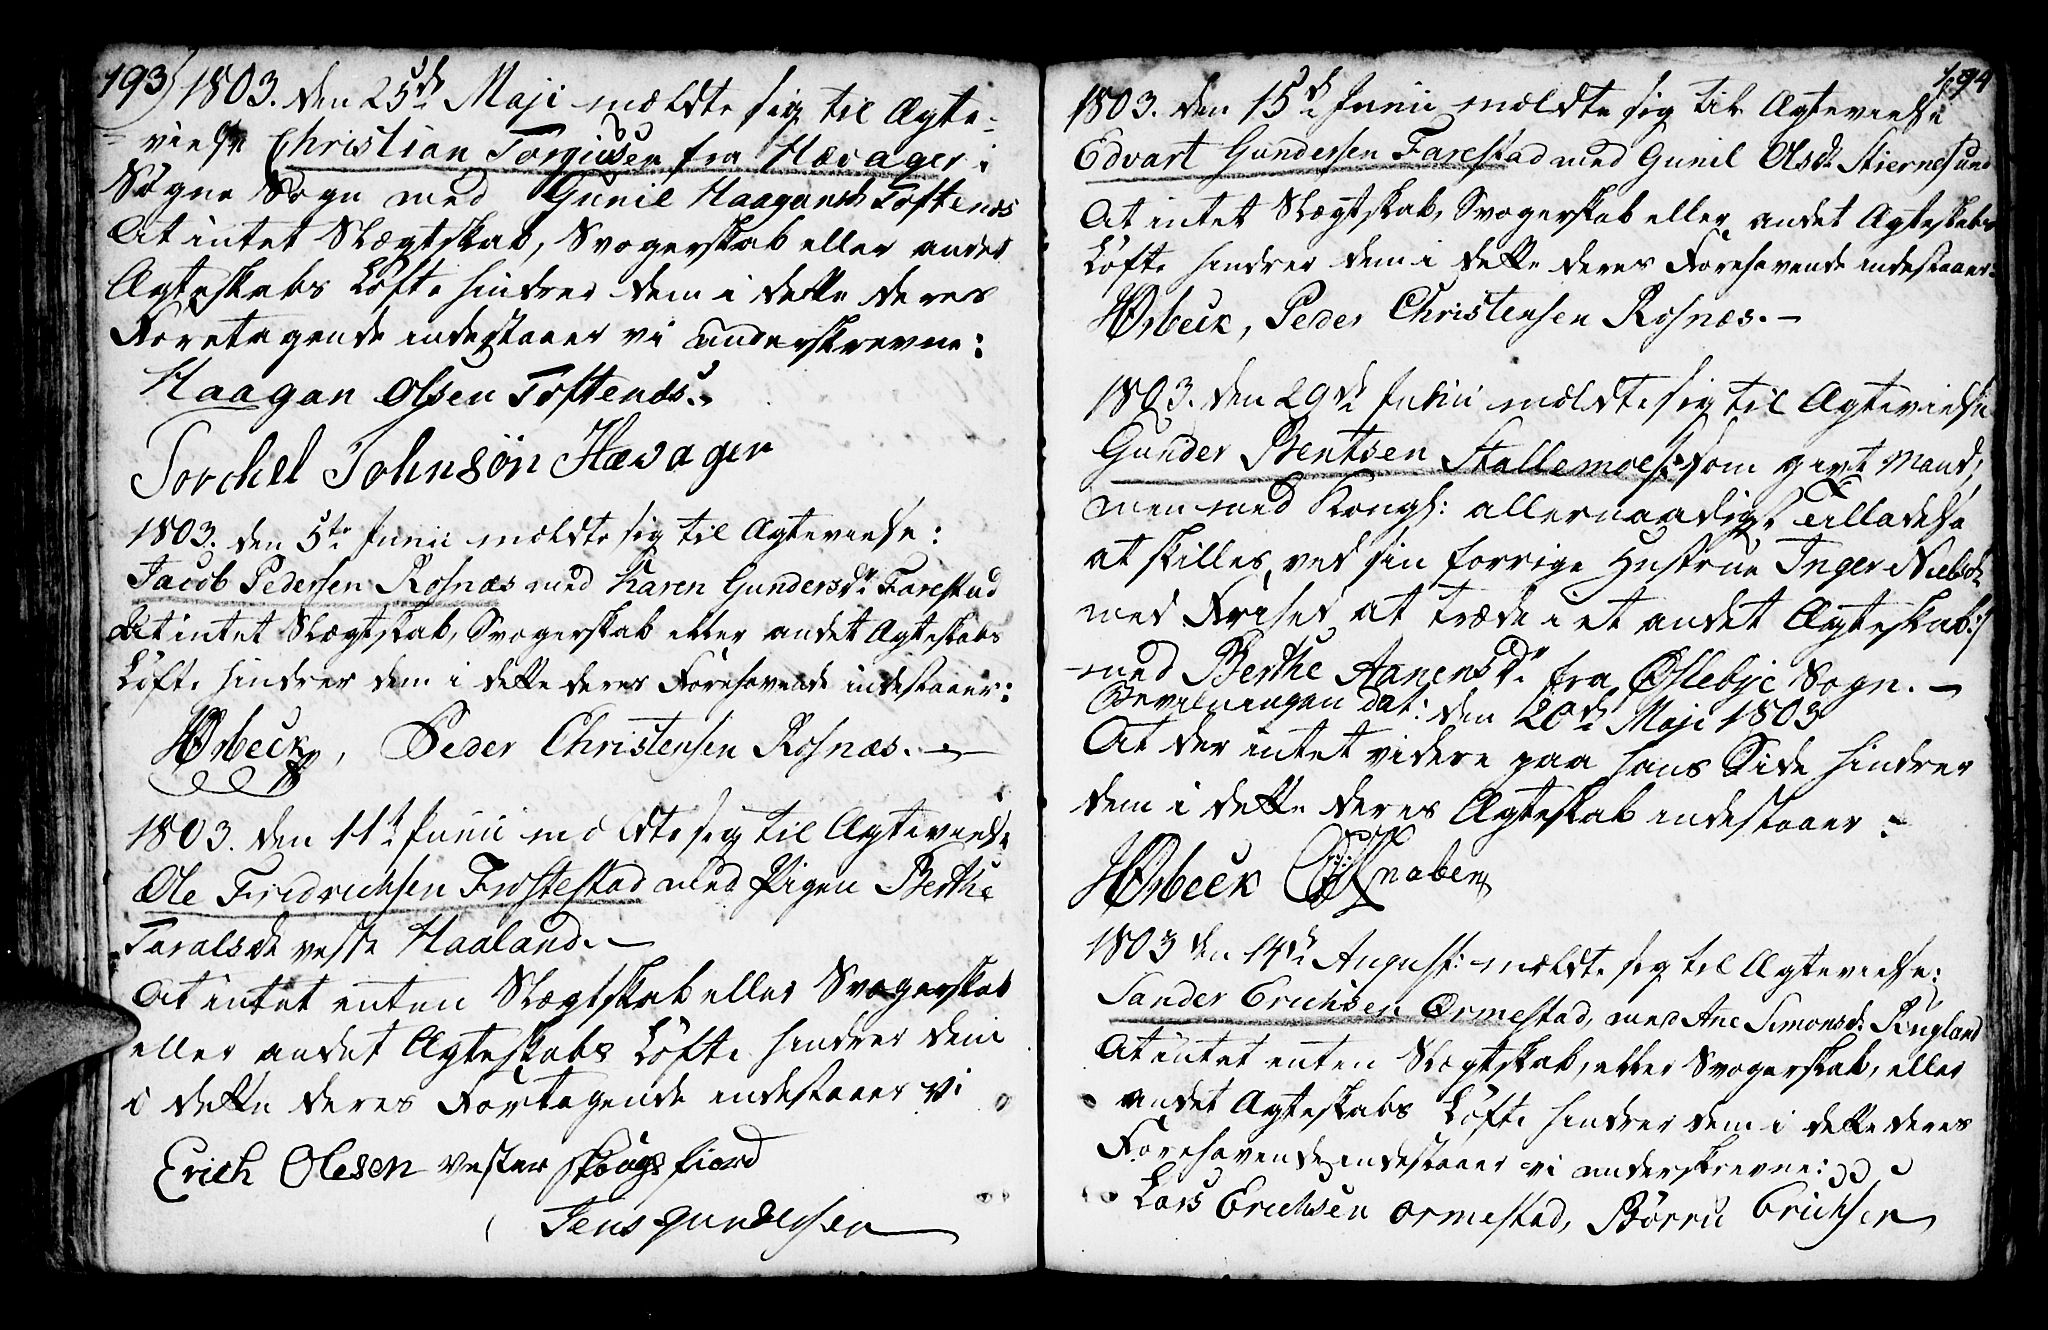 193) 1803. den 25de Maji mældte sig til Ægte-
vielse Christian Torgiusen fra Hævager i
Søgne Sogn med Gunil Haagansd. Toftenæs
At intet Slægtskab, Svogerskab eller andet
Ægteskabs Løfte hindrer dem i dette deres
Foretagende indestaaer vi underskrevne:
Haagan Olsen Toftenæs.
Torchel Johnsøn Hævager
1803. den 5te Junii mældte sig til Ægtevielse:
Jacob Pedersen Rosnæs med Karen Gundersdr Farestad
At intet Slægtskab, Svogerskab eller andet Ægteskabs
Løfte hindrer dem i dette deres Forehavende indestaaer:
HØrbeck, Peder Christensen Rosnæs. -
1803. den 11te Junii mældte sig til Ægtevielse
Ole Fredrichsen Frøstestad med Pigen Berthe
Taralsd. vestr Haaland. -
At intet enten Slægtskab eller Svogerskab
eller andet Ægteskabs Løfte hindrer dem
i dette deres Foretagende indestaaer vi
Erich Olesen vester skougs fiord
Jens gundersen
194
1803. den 15de Junii mældte sig til Ægtevielse
Edvart Gundersen Farestad med Gunil Olsdr Stiernesund
At intet Slægtskab, Svogerskab eller andet Ægteskabs
Løfte hindrer dem i dette deres Forehavende indestaaer:
HØrbeck, Peder Christensen Rosnæs. -
1803. den 29de Junii mældte sig til Ægtevielse
Gunder Bentsen Stallemoe /: som givt Mand,
men med Kongl: allernaadigst Tilladelse
at skilles ved sin forrige Hustrue Inger Nielsdr
med Frihed at træde i et andet Ægteskab :/
med Berthe Aanensdr fra Øslebye Sogn. -
Bevilningen dat: den 20de Maji 1803
At der intet videre paa hans Side hindrer
dem i dette deres Ægteskab indestaaer:
HØrbeck Knaben
1803 den 14de August: mældte sig til Ægtevielse:
Sander Erichsen Ormestad, med Ane Simonsdr Rugland
At intet enten Slægtskab, eller Svogerskab, eller
andet Ægteskabs Løfte hindrer dem i dette deres
Forehavende indestaaer vi underskrevne:
Lars Erichsen Ormestad, Børru Erichsen